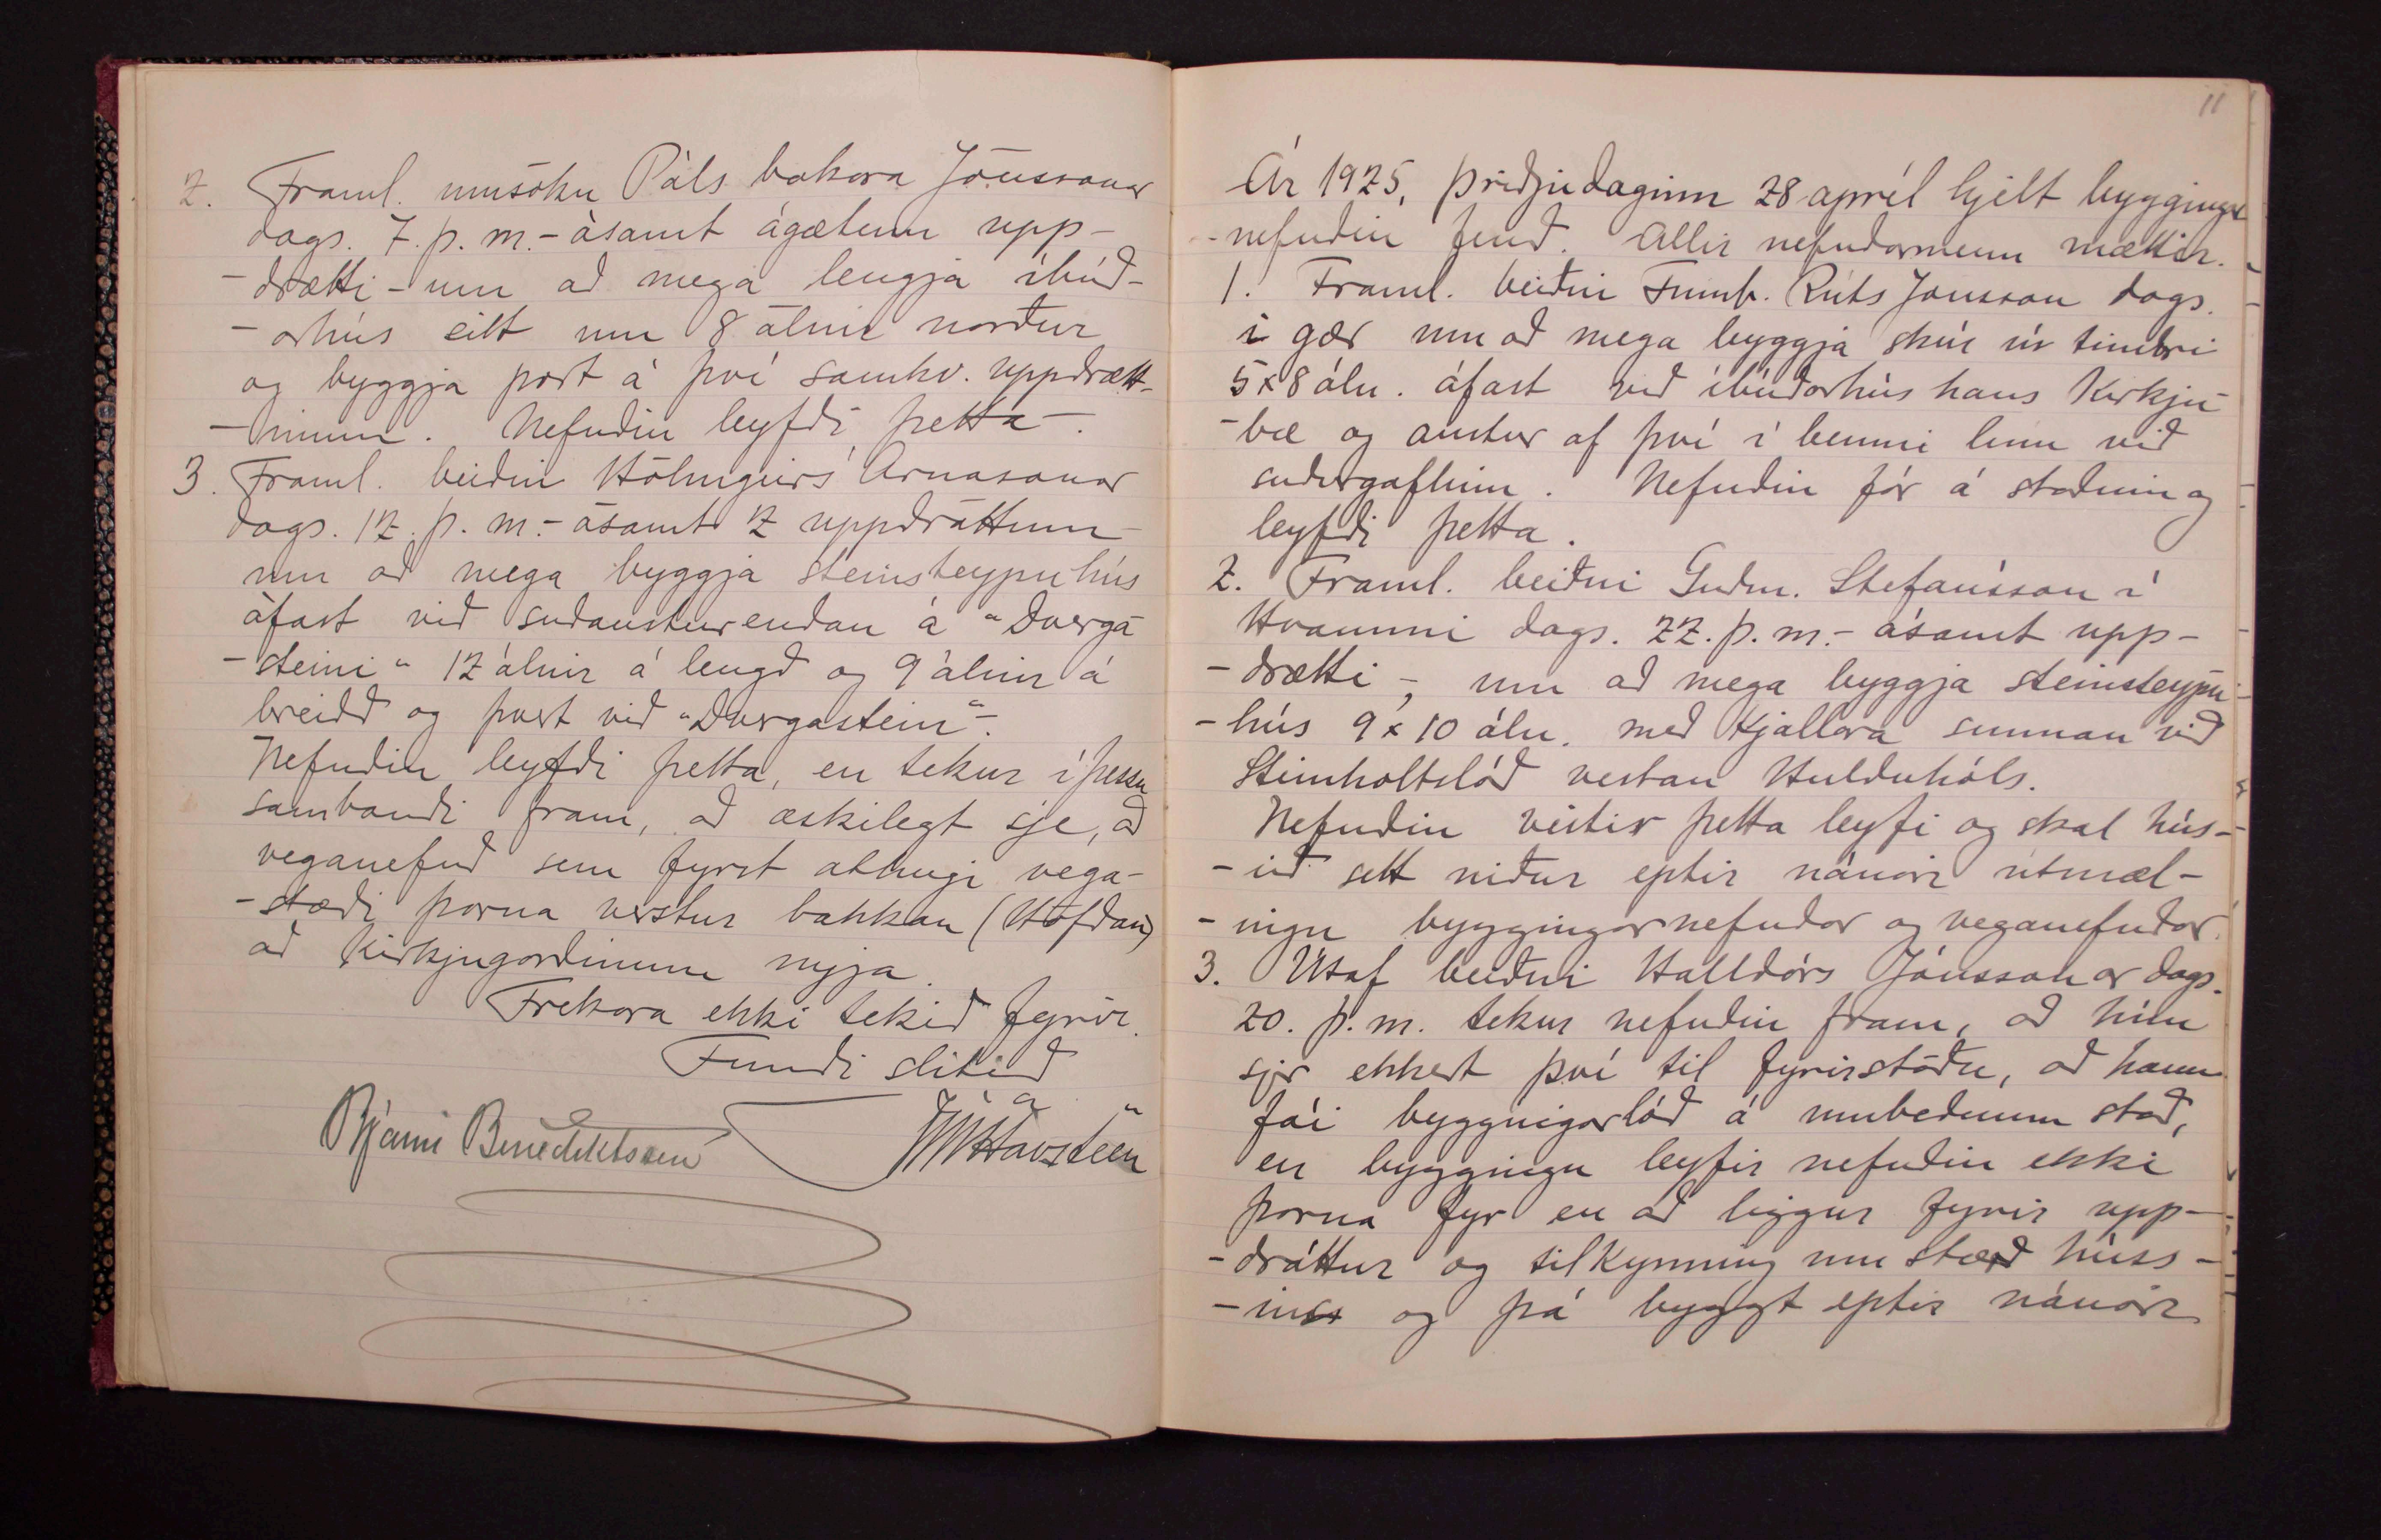 2. Framl. umsókn Páls bakara Jónssonar
dags. 7. þ. m. - ásamt ágætum upp-
- drætti - um að mega lengja íbúð-
- arhús sitt um 8 álnir norður
og byggja port á því samkv. uppdrætt-
- inum. Nefndin leyfði þetta -.
3. Framl. beiðni Hólmgeirs Árnasonar
dags. 12. þ. m. - ásamt 2 uppdráttum -
um að mega byggja steinsteypuhús
áfast við suðausturendan á "Dverga
- steini" 12 álnir á lengd og 9 álnir á
breidd og þvert við "Dvergastein" -.
Nefndin leyfði þetta, en tekur í þessu
sambandi fram, að æskilegt sje, að
veganefnd sem fyrst athugi vega-
- stæði þarna vestur bakkan (Höfðan)
að Kirkjugarðinum nyja.
Frekara ekki tekið fyrir.
Fundi slitið
Bjarni Benediktsson JVHavsteen
11
Ár 1925, þriðjudaginn 28 apríl hjelt byggingar
- nefndin fund. Allir nefndarmenn mættir.
1. Framl. beiðni Frímb. Rúts Jónsson dags.
í gær um að mega byggja skúr úr timbri
5 x 8 áln. áfast við íbúðarhús hans Kirkju
- bæ og austur af því í beinni línu við
suðurgaflinn. Nefndin fór á staðinn og
leyfði þetta.
2. Framl. beiðni Guðm. Stefánsson í
Hvammi dags. 22. þ. m. - ásamt upp-
- drætti -, um að mega byggja steinsteypu
- hús 9 x 10 áln. með kjallara sunnan við
Steinholtslóð vestan Hulduhóls.
Nefndin veitir þetta leyfi og skal hús-
- ið sett niður eptir nánari útmæl-
- ingu byggingarnefndar og veganefndar.
3. Útaf beiðni Halldórs Jónssonar dags.
20. þ. m. tekur nefndin fram, að hún
sjer ekkert því til fyrirstöðu, að hann
fái byggingarlóð á umbeðnum stað,
en byggingu leyfir nefndin ekki
þarna fyr en að liggur fyrir upp-
- dráttur og tilkynning um stærð húss -
- ins og þá byggt eptir nánari